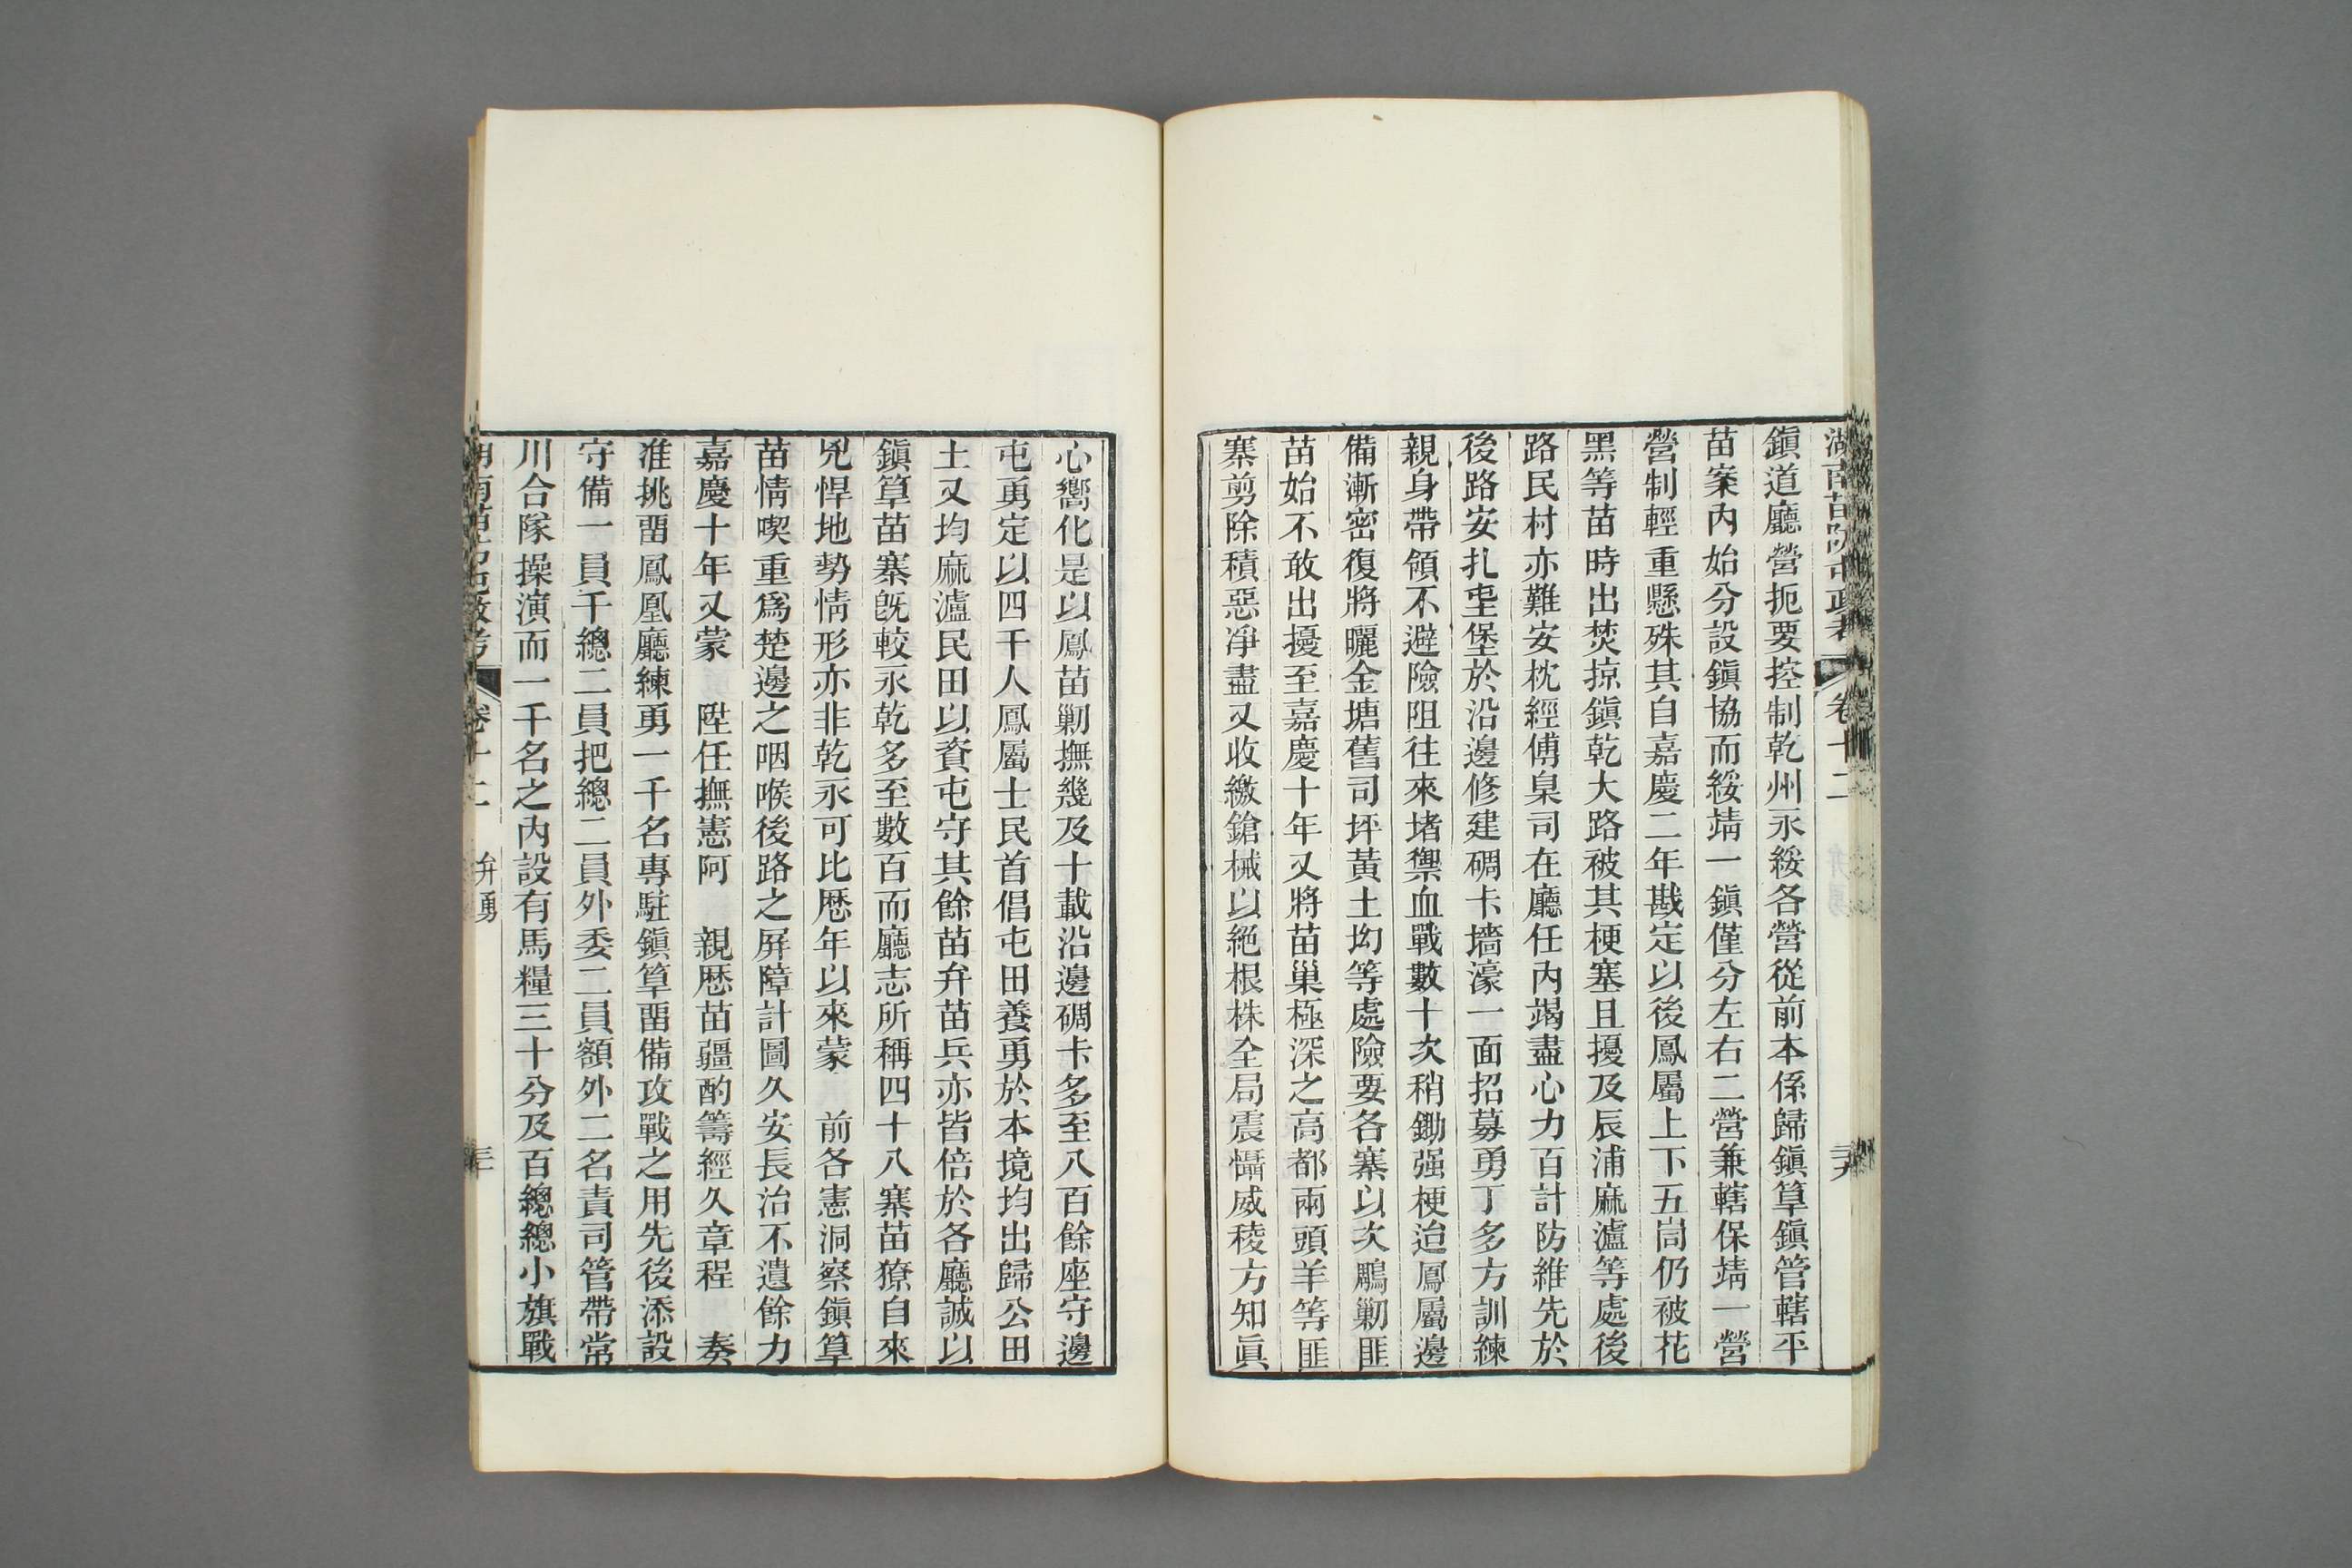 湖南苗防屯政考 卷十二
鎭道廳營扼要控制乾州永綏各營從前本係歸鎭筸鎭管轄平
苗案內始分設鎭協而綏靖一鎭僅分左右二營兼轄保靖一營
營制輕重懸殊其自嘉慶二年戡定以後鳳屬上下五峝仍被花
黑等苗時出焚掠鎭乾大路被其梗塞且擾及辰浦麻瀘等處後
路民村亦難安枕經傅臬司在廳任內竭盡心力百計防維先於
後路安扎屯堡於沿邊修建碉卡墻濠一面招募勇丁多方訓練
親身帶領不避險阻往來堵禦血戰數十次稍鋤强梗迨鳳屬邊
備漸密復將曬金塘舊司坪黃土㘭等處險要各寨以次鵰勦匪
苗始不敢出擾至嘉慶十年又將苗巢極深之高都兩頭羊等匪
寨剪除積惡淨盡又收繳鎗械以絕根株全局震懾威稜方知眞
心嚮化是以鳳苗勦撫幾及十載沿邊碉卡多至八百餘座守邊
屯勇定以四千人鳳屬士民首倡屯田養勇於本境均出歸公田
土又均麻瀘民田以資屯守其餘苗弁苗兵亦皆倍於各廳誠以
鎭筸苗寨旣較永乾多至數百而廳志所稱四十八寨苗獠自來
兇悍地勢情形亦非乾永可比歷年以來蒙 前各憲洞察鎭筸
苗情喫重爲楚邊之咽喉後路之屛障計圖久安長治不遺餘力
嘉慶十年又蒙 陞任撫憲阿 親歷苗疆酌籌經久章程 奏
准挑畱鳳凰廳練勇一千名專駐鎭筸畱備攻戰之用先後添設
守備一員千總二員把總二員外委二員額外二名責司管帶常
川合隊操演而一千名之內設有馬糧三十分及百總總小旗戰
湖南苗防屯政考 卷十二 弁勇 三